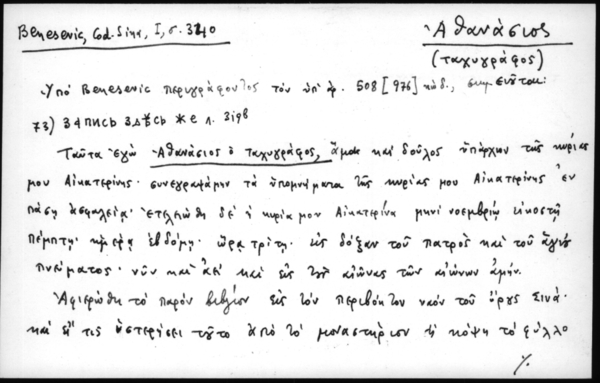 Benesevic, Cod. Sin., I, σ. 340
Ἀθανάσιος
(ταχυγράφος)
Ὑπὸ Benesevic περιγράφοντος τὸν ὑπ' ἀρ. 508 [976] κώδ., σημειοῦται:
73) запись здѣсь же л. 319β
Ταῦτα ἐγὼ Ἀθανάσιος ὁ ταχυγράφος, ἅμα καὶ δοῦλος ὑπάρχων τῆς κυρίας
μου Αἰκατερίνης· συνεγραψάμην τὰ ὑπομνήματα τῆς κυρίας μου Αἰκατερίνης ἐν
πάσῃ ἀσφαλείᾳ· ἐτελειώθη δὲ ἡ κυρία μου Αἰκατερίνα μηνὶ νοεμβρίῳ εἰκοστῇ
πέμπτῃ· ἡμέρᾳ ἑβδόμῃ· ὥρᾳ τρίτῃ· εἰς δόξαν τοῦ πατρὸς καὶ τοῦ ἁγίου
πνεύματος· νῦν καὶ ἀεὶ καὶ εἰς τοὺς αἰῶνας τῶν αἰώνων ἀμήν.
Ἀφιερώθη τὸ παρὸν βιβλίον εἰς τὸν περιβόητον ναὸν τοῦ ὄρους Σινᾶ·
καὶ εἴ τις ὑστερήσει τοῦτο ἀπὸ τὸ μοναστήριον ἢ κόψῃ τὸ φύλλο